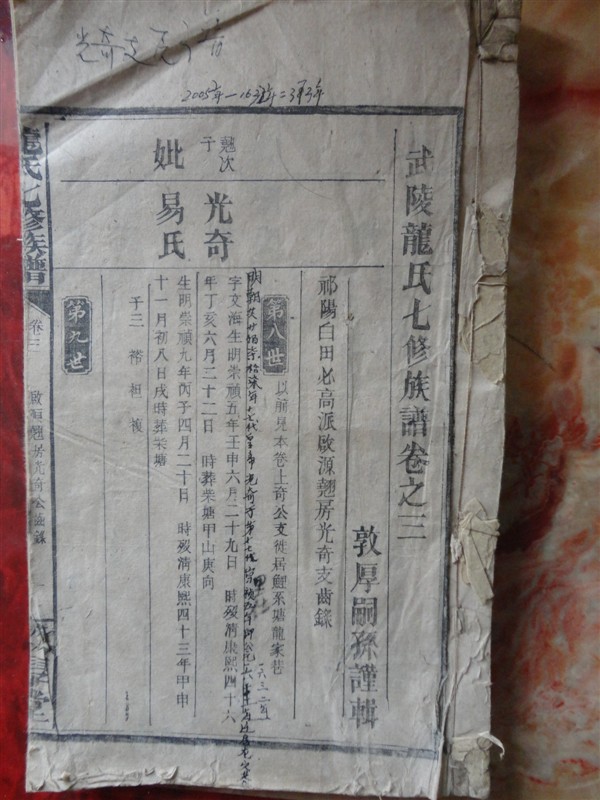 光奇支
2005年
武陵龍氏七修族譜卷之三
敦厚嗣孫謹輯
祁陽白田必高派啟源翹房光奇支齒錄
第八世
以前見本卷上奇公支徙居鯉系塘龍家巷
翹次子
光奇
妣
易氏
一六三二年
字文海生明崇禎五年壬申六月二十九日 時歿清康熙四十六
年丁亥六月二十二日 時葬柴塘甲山庚向
生明崇禎九年丙子四月二十日 時歿清康熙四十三年甲申
十一月初八日戌時葬柴塘
子三 袴 袒 複
第九世
龍氏七修族譜
卷三
翹房光奇公齒錄